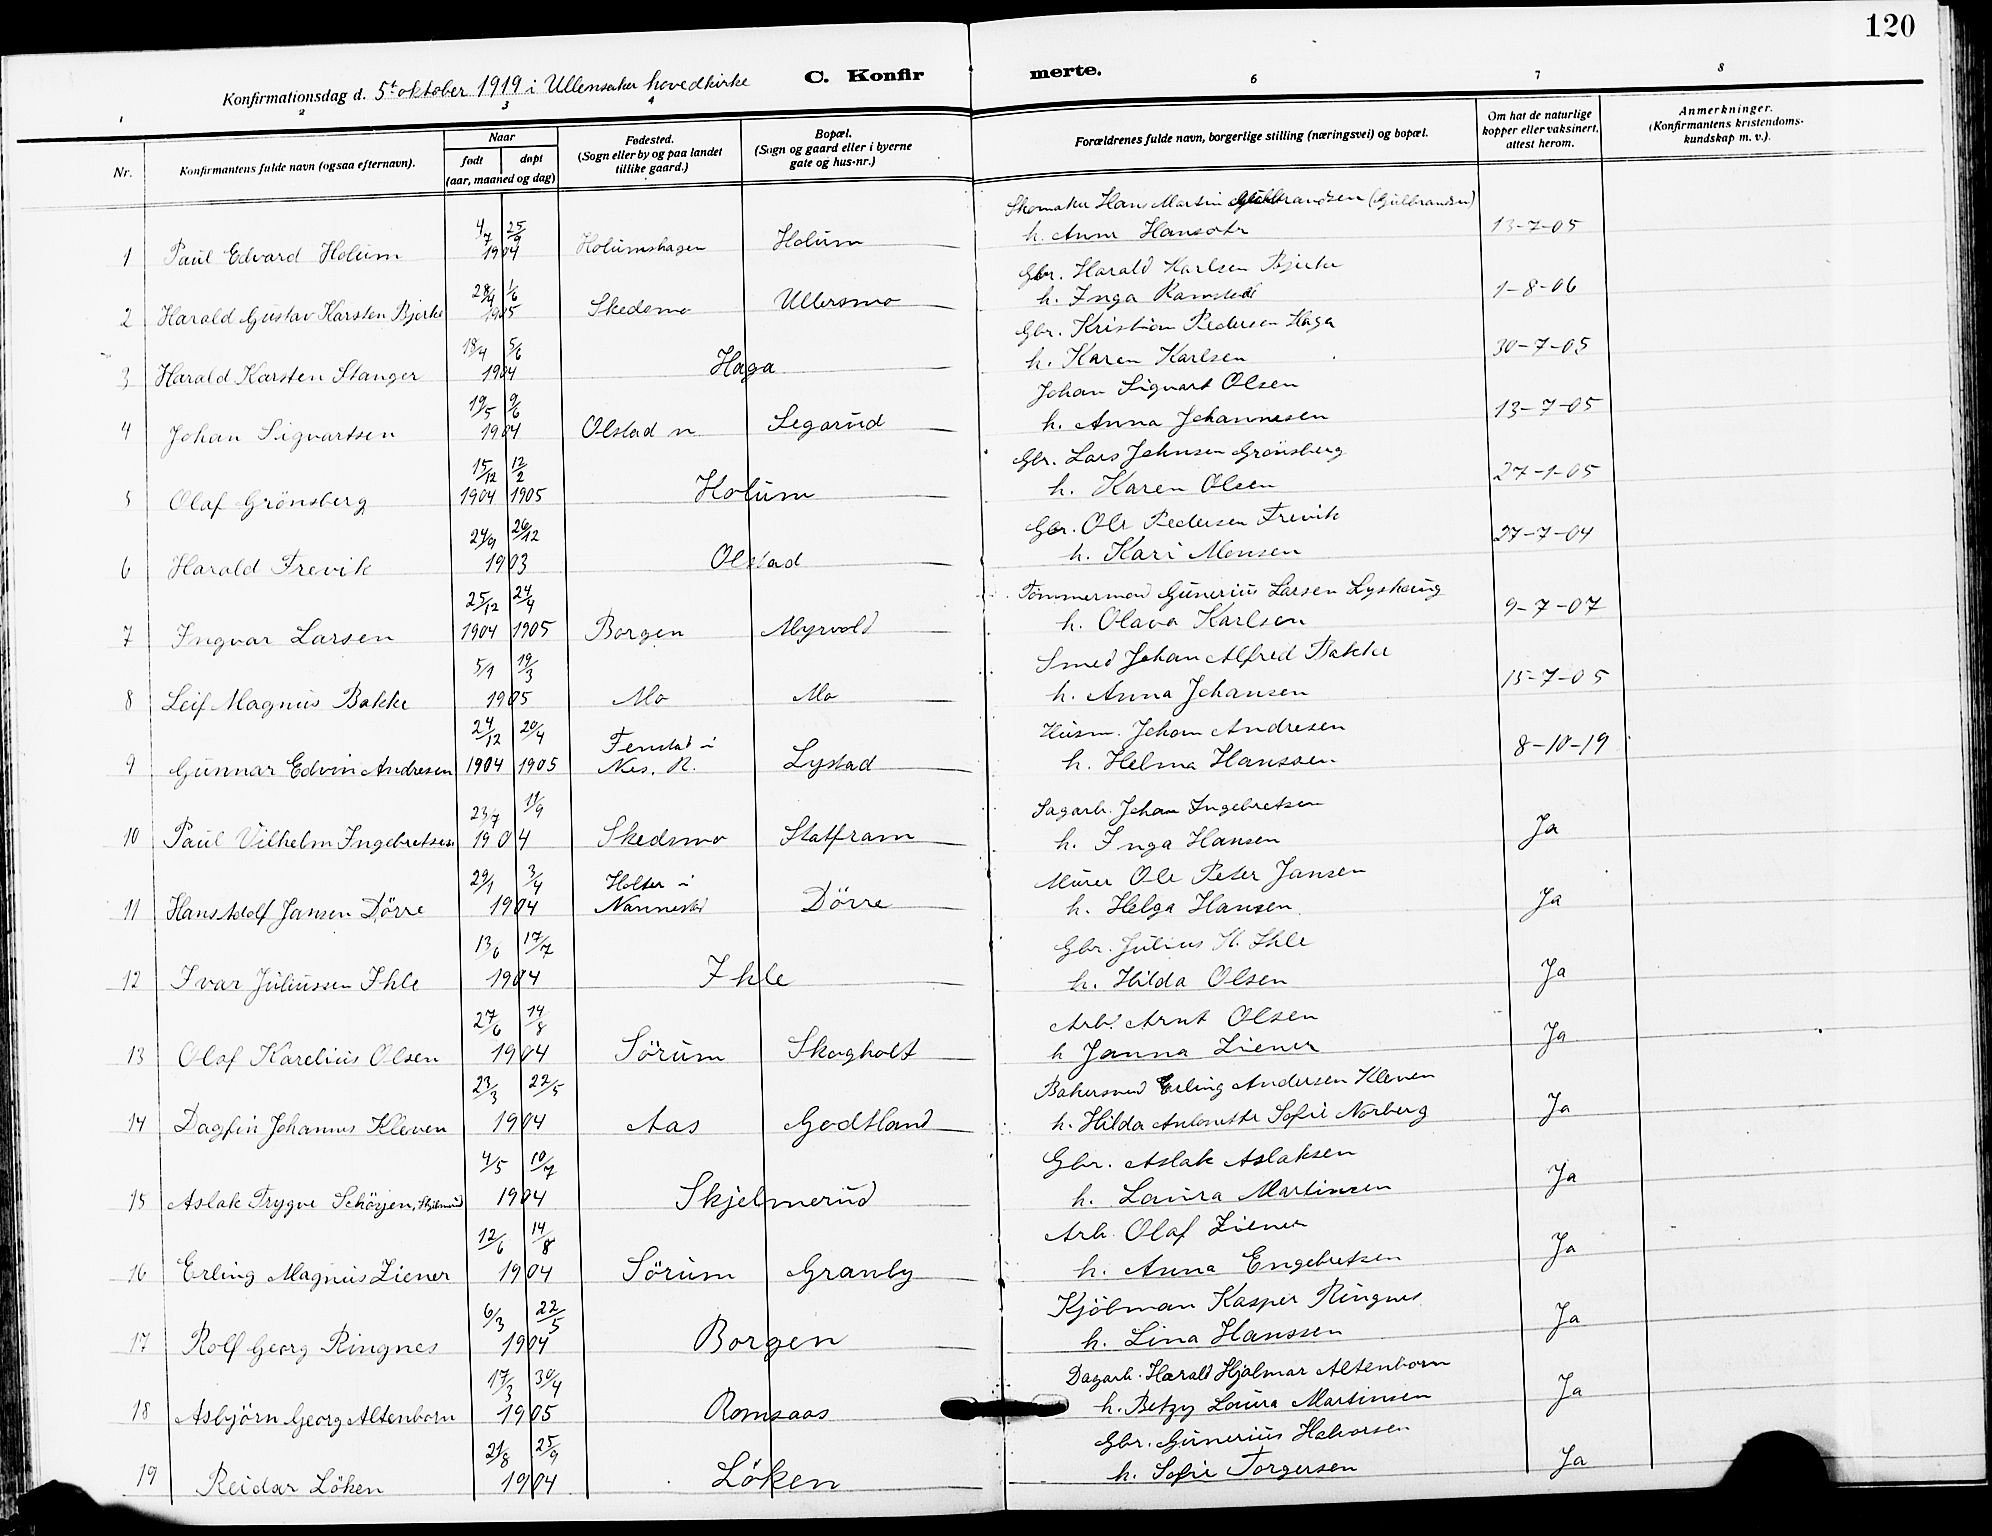 120
Konfirmationsdag d. 5t oktober 1919 i Ullensaker hovedkirke C. Konfirmerte.
1 2 3 4 6 7 8
Nr. Konfirmantens fulde navn (ogsaa efternavn). Naar født døpt (aar, maaned og dag) Fødested. (Sogn eller by og paa landet tillike gaard.) Bopæl. (Sogn og gaard eller i byerne gate og hus-nr.) Forældrenes fulde navn, borgerlige stilling (næringsvei) og bopæl. Om hat de naturlige kopper eller vaksinert, attest herom. Anmerkninger. (Konfirmantens kristendomskundskap m. v.).
4/7 25/9 Skomaker Hans Martin Gulbrandsen (Gulbrandsen)
1 Paul Edvard Holum 1904 Holumshagen Holum h. Anne Hansdtr 13-7-05
28/4 1/6 Gbr. Harald Karlsen Bjerke
2 Harald Gustav Karsten Bjerke 1905 Skedsmo Ullersmo h. Inga Ramstedt 1-8-06
18/4 5/6 Gbr. Kristian Pedersen Haga
3 Harald Karsten Stanger 1904 Haga h. Karen Karlsen 30-7-05
19/5 9/6 Johan Sigvart Olsen
4 Johan Sigvartsen 1904 Olstad n. Segarud h. Anna Johannesen 13-7-05
15/12 12/2 Gbr. Lars Johnsen Grönsberg
5 Olaf Grönsberg 1904 1905 Holum h. Karen Olsen 27-1-05
24/9 26/12 Gbr. Ole Pedersen Trevik
6 Harald Trevik 1903 Olstad h. Kari Monsen 27-7-04
25/12 24/4 Tömmermand Gunerius Larsen Lyshaug
7 Ingvar Larsen 1904 1905 Borgen Myrvold h. Olava Karlsen 9-7-07
5/1 19/3 Smed Johan Alfred Bakke
8 Leif Magnus Bakke 1905 Mo Mo h. Anna Johansen 15-7-05
24/12 20/4 Fenstad i Husm. Johan Andresen
9 Gunnar Edvin Andresen 1904 1905 Nes. R. Lystad h. Helma Hanssen 8-10-19
23/7 11/9 Sagarb. Johan Ingebretsen
10 Paul Vilhelm Ingebretsen 1904 Skedsmo Statfram h. Inga Hansen Ja
29/1 3/4 Holter i Murer Ole Peter Jansen
11 Hans Adolf Jansen Dörre 1904 Nannestad Dörre h. Helga Hansen Ja
13/6 17/7 Gbr. Julius H. Ihle
12 Ivar Juliussen Ihle 1904 Ihle h. Hilda Olsen Ja
27/6 14/8 Arb. Arnt Olsen
13 Olaf Karelius Olsen 1904 Sörum Skogholt h Janna Ziener Ja
23/3 22/5 Bakersvend Erling Andersen Kleven
14 Dagfin Johannes Kleven 1904 Aas Godtland h. Hilda Antonette Sofie Norberg Ja
4/5 10/7 Gbr. Aslak Aslaksen
15 Aslak Trygve Schörjen, Skjelmerud 1904 Skjelmerud h. Laura Martinsen Ja
12/6 14/8 Arb. Olaf Ziener
16 Erling Magnus Ziener 1904 Sörum Granby h. Anna Engebretsen Ja
6/3 22/5 Kjöbman Kasper Ringnes
17 Rolf Georg Ringnes 1904 Borgen h. Lina Hanssen Ja
17/3 30/4 Dagarb. Harald Hjalmar Altenborn
18 Asbjörn Georg Altenborn 1905 Romsaas h. Betzy Laura Martinsen Ja
21/8 25/9 Gbr. Gunerius Halvorsen
19 Reidar Löken 1904 Löken h. Sofie Torgersen Ja